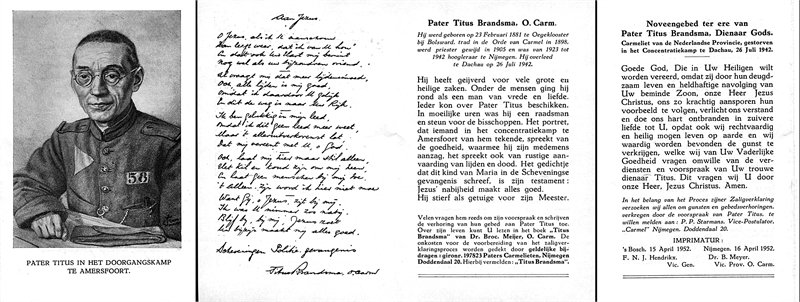 56
PATER TITUS IN HET DOORGANGSKAMP
TE AMERSFOORT.
Aan Jezus.
O Jezus, als ik U aanschouw
Dan leeft weer, dat ik van U hou'
En dat ook uw Hart mij bemint
Nog wel als uw bijzondren vriend.
Al vraagt mij dat meer lijdensmoed,
Och, alle lijden is mij goed,
Omdat ik daardoor U gelijk
En dit de weg is naar Uw Rijk.
Ik ben gelukkig in mijn leed,
Omdat ik dit geen leed meer weet,
Maar 't alleruitverkorenst lot
Dat mij vereent met U, o God.
O, laat mij hier maar stil alleen,
Het kil en koud zijn om mij heen
En laat geen menschen bij mij toe
't Alleen zijn word ik hier niet moe
Want Gij, o Jezus, zijt bij mij.
Ik was U nimmer zoo nabij.
Blijf bij, bij mij, Jezus zoet
Uw bijzijn maakt mij alles goed.
Scheveningen Politie-gevangenis
Titus Brandsma, O. Carm
Pater Titus Brandsma. O. Carm.
Hij werd geboren op 23 Februari 1881 te Oegeklooster
bij Bolsward, trad in de Orde van Carmel in 1898,
werd priester gewijd in 1905 en was van 1923 tot
1942 hoogleraar te Nijmegen. Hij overleed
te Dachau op 26 Juli 1942.
Hij heeft geijverd voor vele grote en
heilige zaken. Onder de mensen ging hij
rond als een man van vrede en liefde.
Ieder kon over Pater Titus beschikken.
In moeilijke uren was hij een raadsman
en steun voor de bisschoppen. Het portret,
dat iemand in het concentratiekamp te
Amersfoort van hem tekende, spreekt van
de goedheid, waarmee hij zijn medemens
aanzag, het spreekt ook van rustige aan-
vaarding van lijden en dood. Het gedichtje
dat dit kind van Maria in de Scheveningse
gevangenis schreef, is zijn testament:
Jezus' nabijheid maakt alles goed.
Hij stierf als getuige voor zijn Meester.
Velen vragen hem reeds om zijn voorspraak en schrijven
de verhoring van hun gebed aan Pater Titus toe.
Over zijn leven kunt U lezen in het boek „Titus
Brandsma" van Dr. Broc. Meijer, O. Carm. De
onkosten voor de voorbereiding van het zaligver-
klaringsproces worden gedekt door geldelijke bij-
dragen: gironr. 197823 Paters Carmelieten, Nijmegen
Doddendaal 20. Hierbij vermelden: „Titus Brandsma".
Noveengebed ter ere van
Pater Titus Brandsma, Dienaar Gods.
Carmeliet van de Nederlandse Provincie, gestorven
in het Concentratiekamp te Dachau, 26 Juli 1942.
Goede God, Die in Uw Heiligen wilt
worden vereerd, omdat zij door hun deugd-
zaam leven en heldhaftige navolging van
Uw beminde Zoon, onze Heer Jezus
Christus, ons zo krachtig aansporen hun
voorbeeld te volgen, verlicht ons verstand
en doe ons hart ontbranden in zuivere
liefde tot U, opdat ook wij rechtvaardig
en heilig mogen leven op aarde en wij
waardig worden bevonden de gunst te
verkrijgen, welke wij van Uw Vaderlijke
Goedheid vragen omwille van de ver-
diensten en voorspraak van Uw trouwe
dienaar Titus. Dit vragen wij U door
onze Heer, Jezus Christus. Amen.
In het belang van het Proces zijner Zaligverklaring
verzoeken wij allen om gunsten en gebedsverhoringen,
verkregen door de voorspraak van Pater Titus, te
willen melden aan: P. P. Starmans. Vice-Postulator,
„Carmel" Nijmegen. Doddendaal 20.
IMPRIMATUR:
's Bosch, 15 April 1952. Nijmegen, 16 April 1952,
F. N. J. Hendrikx, Dr. B. Meyer.
Vic. Gen. Vic. Prov. O. Carm.